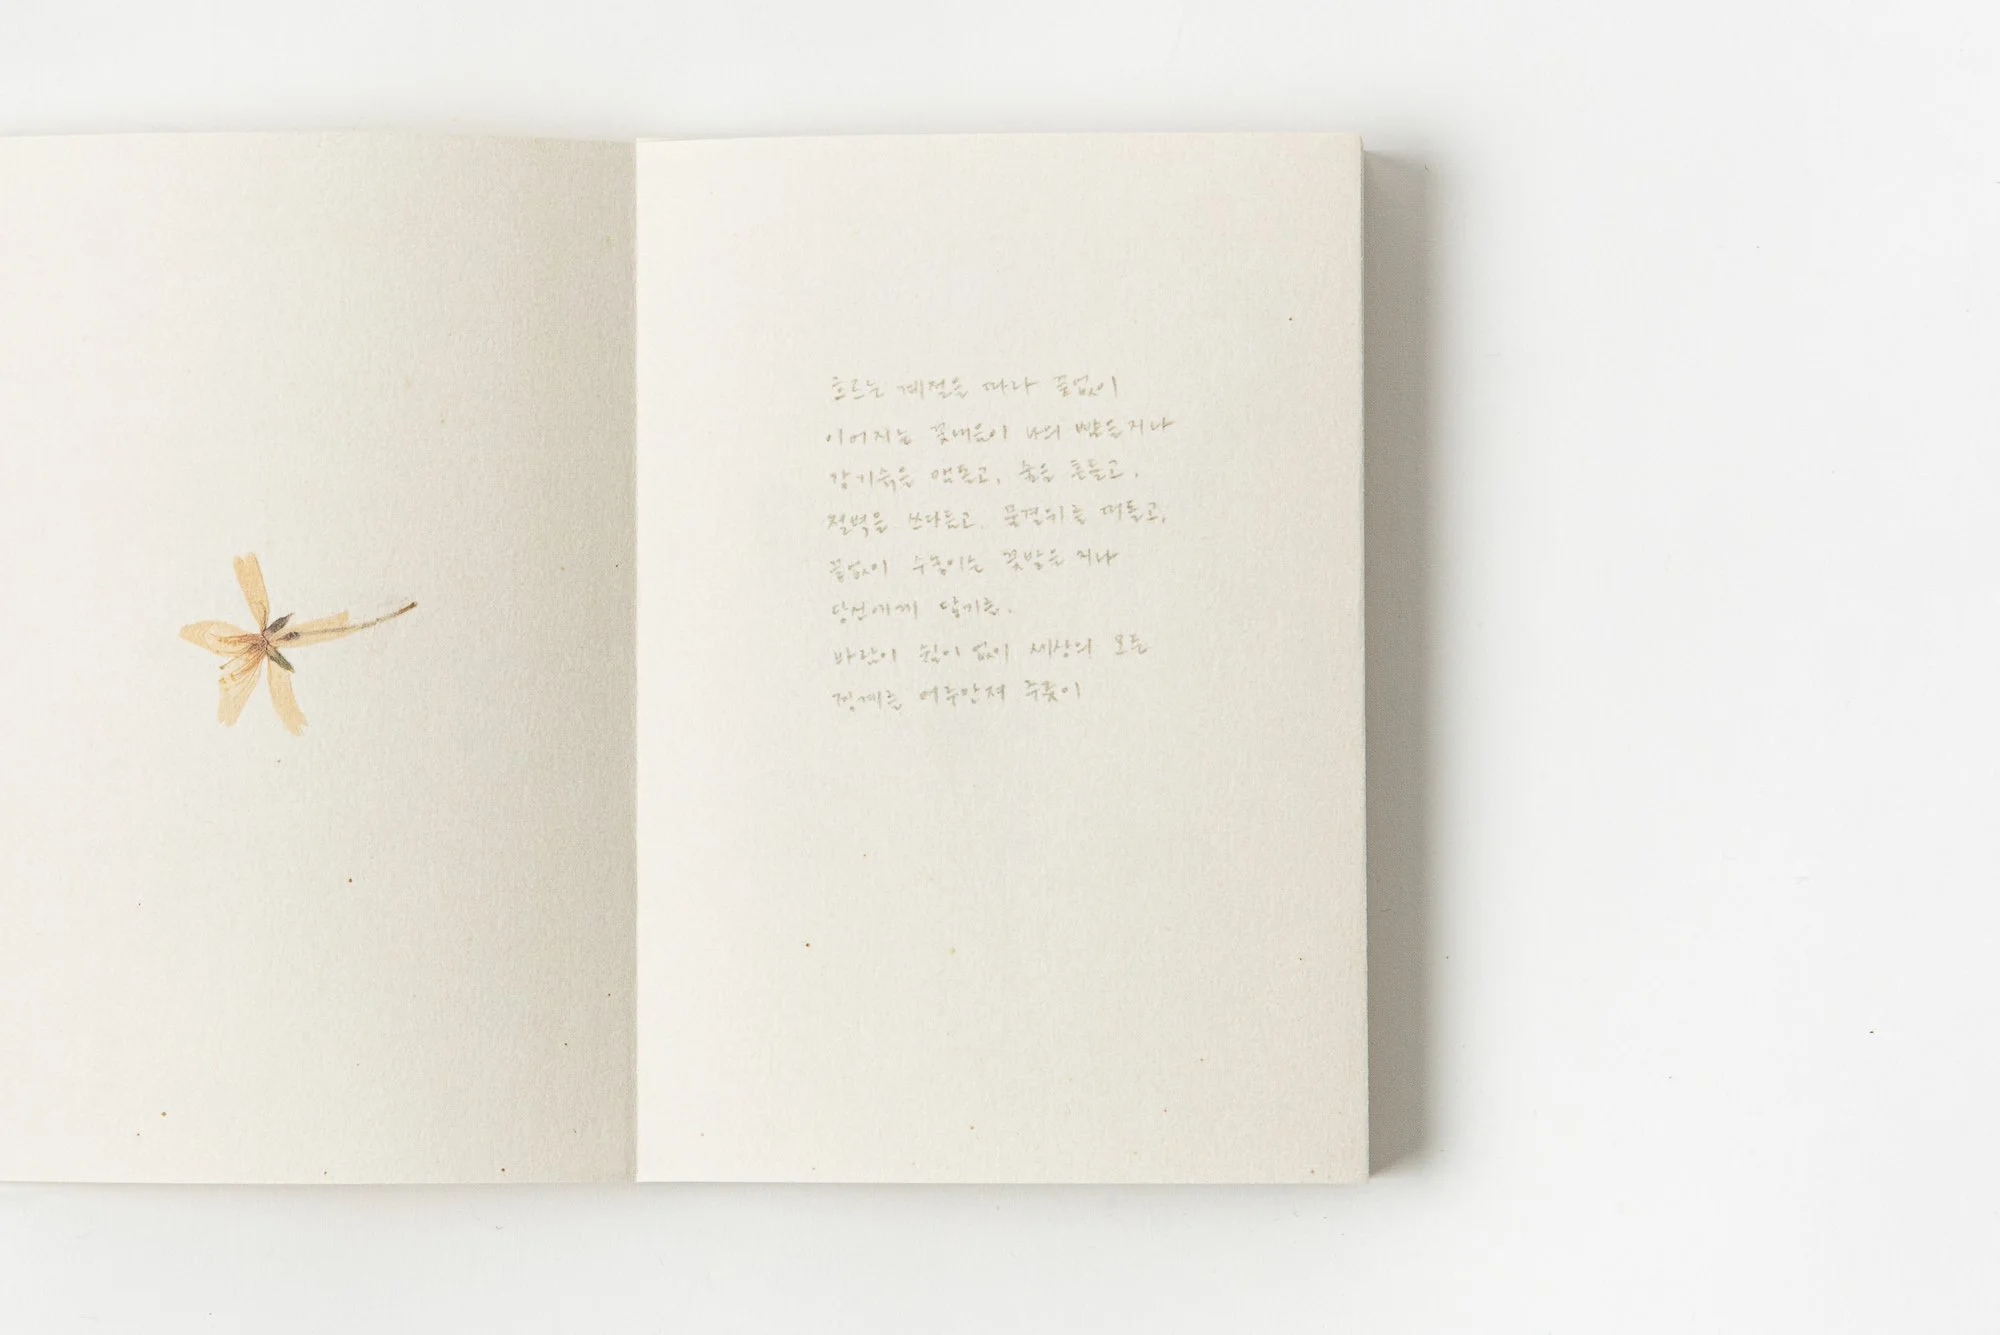 흐르는 계절을 따라 끝없이
이어지는 꽃내음이 나의 뺨을 지나
강기슭을 맴돌고, 숲을 흔들고,
절벽을 쓰다듬고, 물결위를 떠돌고,
끝없이 수놓이는 꽃밭을 지나
당신에게 닿기를.
바람이 쉼이 없이 세상의 모든
경계를 어루만져 주듯이